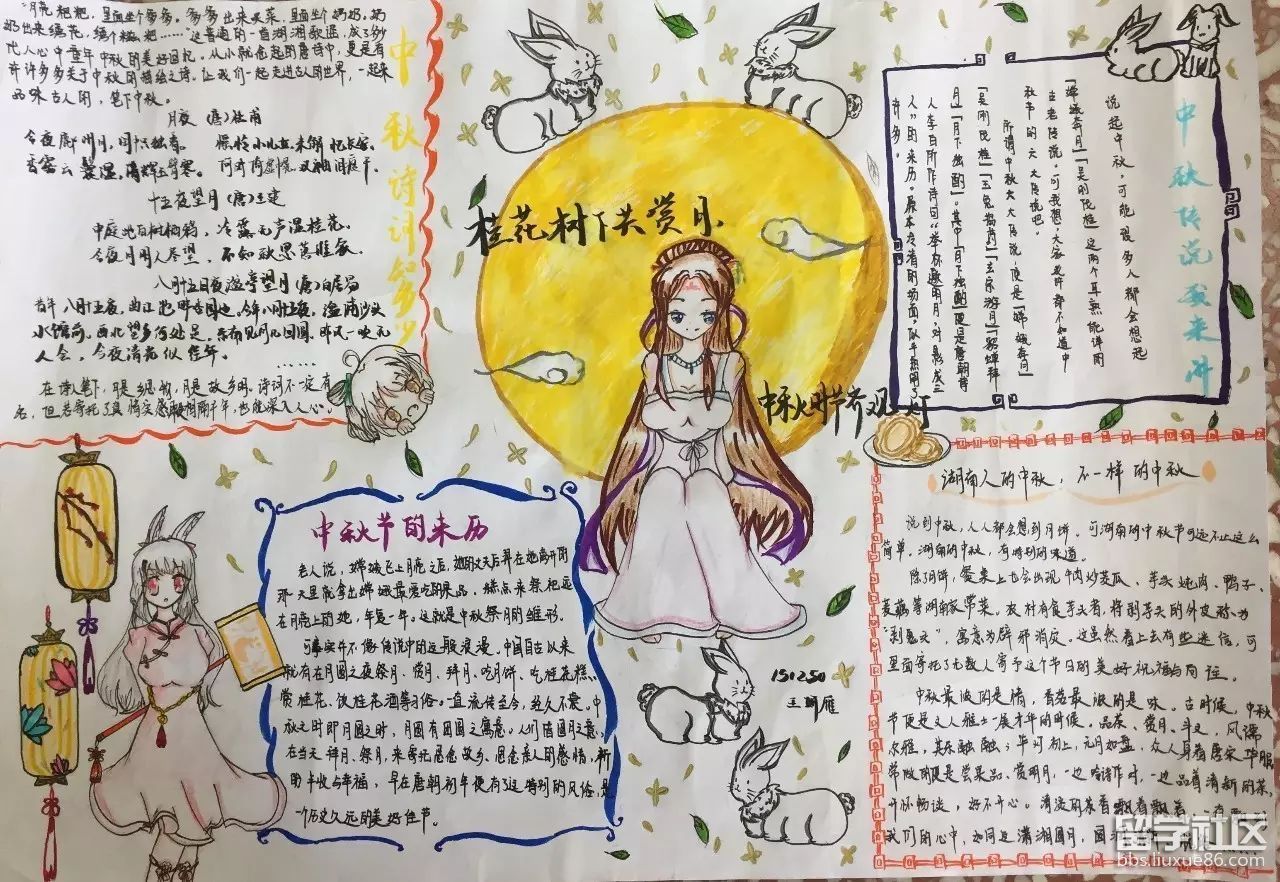 "月亮粑粑,里面坐个爹爹,爹爹出来买菜,里面坐个奶奶,奶
奶出来绣花,绣个糍粑……"这普通的一首湖湘歌谣,成了
代人心中童年中秋的美好回忆。从小就念起的唐诗中,更是有
许许多多关于中秋的描绘之诗。让我们一起走进古人的世界,一起来
品味古人的,笔下中秋。
月夜 (唐)杜甫
今夜鄜州月,闺中只独看。 遥怜小儿女,未解忆长安。
香雾云鬟湿,清辉玉臂寒。 何时倚虚幌,双照泪痕干。
十五夜望月 (唐)王建
中庭地白树栖鸦,冷露无声湿桂花。
今夜月明人尽望,不知秋思落谁家。
八月十五日夜湓亭望月 (唐)白居易
昔年八月十五夜,曲江池畔杏园边。今年八月十五夜,湓浦沙头
水馆前。西北望乡何处是,东南见月几回圆。昨风一吹无
人会,今夜清光似往年。
……
在诗人笔下,月是故乡明,诗词不一定有
名,但若寄托了真情实感
中秋诗词知多少
桂花树下共赏月
中秋时节齐观灯
中秋传说我来讲
说起中秋,可能很多人都会想起
"嫦娥奔月""吴刚伐桂"这两个耳熟能详的
古老传说。可我想,大家也许都不知道中
秋节的六大传说吧。
所谓中秋六大传说,便是"嫦娥奔月"
"吴刚伐桂""玉兔捣药""玄宗游月""貂蝉拜
月""月下独酌"。其中"月下独酌"便是唐朝诗
人李白所作诗句"举杯邀明月,对影成三
人"的来历。原本没有的场面,似乎热闹了
许多。
中秋节的来历
老人说,嫦娥飞上月亮之后,她的丈夫后羿在她离开的
那天里就拿出嫦娥最爱吃的果品、糕点来祭祀远
在月亮上的她,年复一年。这就是中秋祭月的雏形。
可事实并不像传说中的这般浪漫。中国自古以来
就有在月圆之夜祭月、赏月、拜月、吃月饼、吃桂花糕、
赏桂花、饮桂花酒等习俗。一直流传至今,经久不衰。中
秋之时即月圆之时,月圆有团圆之寓意。人们借圆月之意,
在当天拜月、祭月,来寄托思念故乡、思念亲人的感情,祈
盼丰收与幸福,早在唐朝初年便有这特别的风俗,是
一个历史久远的美好佳节。
湖南人的中秋,不一样的中秋
说到中秋,人人都会想到月饼。可湖南的中秋节可远不止这么
简单。湖南的中秋,有特别的味道。
除了月饼,餐桌上也会出现牛肉炒苦瓜、芋头炖肉、鸭子、
莲藕等湖南家常菜。农村有食芋头者,将剥芋头的外皮称为
"剥鬼皮",寓意为辟邪消灾。这虽然看上去有些迷信,可
里面寄托了无数人寄予这个节日的美好祝福与向往。
中秋最浓的是情,香茗最浓的是味。古时候,中秋
节便是文人雅士一展才华的时候。品茶、赏月、斗文,风谲
尔雅,其乐融融;华灯初上,元月如盘,众人身着唐宋华服
常做的便是尝果品、赏明月,一边吟诗作对,一边品着清新的茶,
开怀畅谈,好不开心。清淡的茶香飘着飘着,
我们的心中,如同这潇湘圆月,
151250
王
留学社区
bbs.liuxue86.com